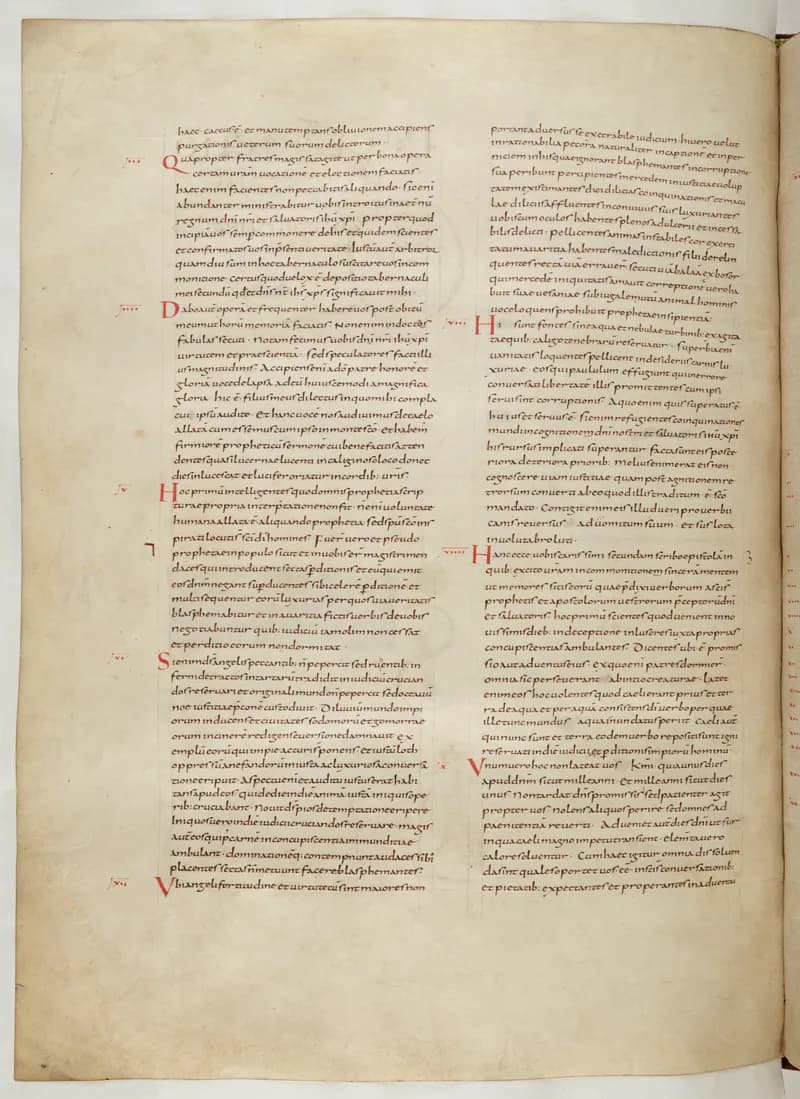 haec caecus ē et manu temptans obliuionem accipiens
purgationis ueterum suorum delictorum
Quapropter fratres magis satagite ut per bona opera
certam uram uocationē et electionem faciatis
haec enim facientes non peccabitis aliquando sic enī
abundanter ministrabitur uobis introitus in aetnū
regnum dn̄i nr̄i et saluatoris ihū xp̄i propter quod
incipiā uos semp commonere de his et quidem scientes
et confirmatos uos in p̄senti ueritate Iustū aut arbitror
quamdiu sum in hoc tabernaculo suscitare uos in com
monitione certus quod uelox ē depositio tabernaculi
mei secundū qd et dn̄s nr̄ ihs xp̄s significauit mihi
Dabo aūt operā et frequenter habere uos post obitū
meum ut horū memoriā faciatis Non enim indoctas
fabulas secuti notam fecimus uobis dn̄i nr̄i ihū xp̄i
uirtutem et praesentiā sed speculatores facti illi
us magnitudinis Accipiens enī a dō patre honorē et
gloriā uoce delapsa ad eū huiuscemodi a magnifica
gloria hic ē filius meus dilectus in quo mihi compla
cui ipsū audite et hanc uocē nos audiuimus de caelo
allatā cum essemus cum ipso in monte scō et habem
firmiorē propheticū sermonē cui bene facitis atten
dentes quasi lucernae lucenti in caliginoso loco donec
dies inlucescat et lucifer oriatur in cordib uris
Hoc primū intellegentes quod omnis prophetia scrip
turae propria interp̄tatione non fit nec enī uoluntate
humana allata ē aliquando prophetia sed sp̄u scō ins
pirati locuti s̄ sc̄i dī homines Fuer̄ uero et pseudo
prophetae in populo sicut et in uobis er̄ magistri men
daces qui introducent sectas pditionis et eū qui emit
eos dn̄m negant sup ducentes sibi celerē pditionē et
multi sequentur eorū luxurias per quos uia ueritatis
blasphemabitur et in auaritia fictis uerbis de uobis
negotiabuntur quib iudiciū iam olim non cessat
et perditio eorum non dormitat
Si enim ds̄ angelis peccantib n̄ pepercit sed rudentib in
ferni detractos in tartarū tradidit in iudiciū crucian
dos reseruari et originali mundo n̄ pepercit sed octauū
noe iustitiae praeconē custodiuit Diluuiū mundo impi
orum inducens et ciuitates sodomorū et gomorrae
orum in cinerē redigens euersione damnauit ex
emplū eorū qui impie acturi s̄ ponens et iustū loth
oppressū a nefandorū iniusta ac luxuriosa conuersa
tione eripuit Aspectu enī et auditu iustus erat habi
tans apud eos qui de die in die animā iustā iniquis ope
rib cruciabant Nouit dn̄s pios de temptatione eripere
Iniquos uero in diē iudicii cruciandos reseruare magis
autē eos qui p carnē in concupiscentia immunditiae
ambulant dominationēq contempnunt audaces sibi
placentes sectas n̄ metuunt facere blasphemantes
Vbi angeli fortitudine et uirtute cū sint maiores non
portant aduersus se execrabile iudicium hii uero uelut
inrationabilia pecora naturaliter in captionē et in per
niciem in his quae ignorant blasphemantes in corruptione
sua peribunt percipientes mercedem iniustitiae uolup
tatem existimantes diei dilicias coinquinationes et macu
lae diliciis affluentes in conuiuiis suis luxuriantes
uobiscum oculos habentes plenos adulterii et incessa
bilis delicti pellicentes animas instabiles cor exerci
tatum auaritia habentes maledictionis filii derelin
quentes rectā uiā errauer̄ secuti uiā balaā ex bosor
qui mercedē iniquitatis amauit correptionē uero ha
buit suae uesaniae subiugale mutū animal hominis
uoce loquens prohibuit prophetae insipientiā
Hi sunt fontes sine aqua et nebulae turbinib exagita
tae quib caligo tenebrarū reseruatur superbia enī
uanitatis loquentes pellicent in desideriis carnis lu
xuriae eos qui paululum effugiunt qui in errore
conuersati libertatē illis promittentes cum ipsi
serui sint corruptionis A quo enim quis superatus ē
huius et seruus ē si enim refugientes coinquinationes
mundi in cognitionem dn̄i nostri et saluatoris ihū xp̄i
his rursus implicati superantur facta sunt eis poste
riora deteriora priorib melius enim erat eis non
cognoscere uiam iustitiae quam post agnitionem re
trorsum conuerti ab eo quod illis traditum ē scō
mandato Contigit enim eis illud ueri prouerbii
canis reuersus ad uomitum suum et sus lota
in uolutabro luti
Hanc ecce uobis carissimi secundam scribo epistolā in
quib excito uram in commonitionem sincerā mentem
ut memores sitis eorū quae p̄dixi uerborum a scīs
prophetis et apostolorum uestrorum p̄ceptorū dn̄i
et saluatoris hoc primū scientes quod uenient in no
uissimis dieb in deceptione inlusores iuxta proprias
concupiscentias ambulantes Dicentes ubi ē promis
sio aut aduentus eius ex quo enī patres dormier̄
omnia sic perseuerant ab initio creaturae Latet
enim eos hoc uolentes quod caeli erant prius et ter
ra de aqua et per aquā consistens dī uerbo per quae
ille tunc mundus aqua inundatus periit caeli aūt
qui nunc sunt et terra eodem uerbo repositi sunt igni
reseruati in diē iudicii et pditionis impiorū hominū
Vnum uero hoc non lateat uos km̄i quia unus dies
apud dn̄m sicut mille anni et mille anni sicut dies
unus Non tardat dn̄s promissis sed patienter agit
propter uos nolens aliquos perire sed omnes ad
paenitentiā reuerti Adueniet aūt dies dn̄i ut fur
in qua caeli magno impetu transient elem̄ta uero
calore soluentur Cum haec igitur omnia dissoluen
da sint quales oportet uos eē in scīs conuersationib
et pietatib expectantes et properantes in aduentū